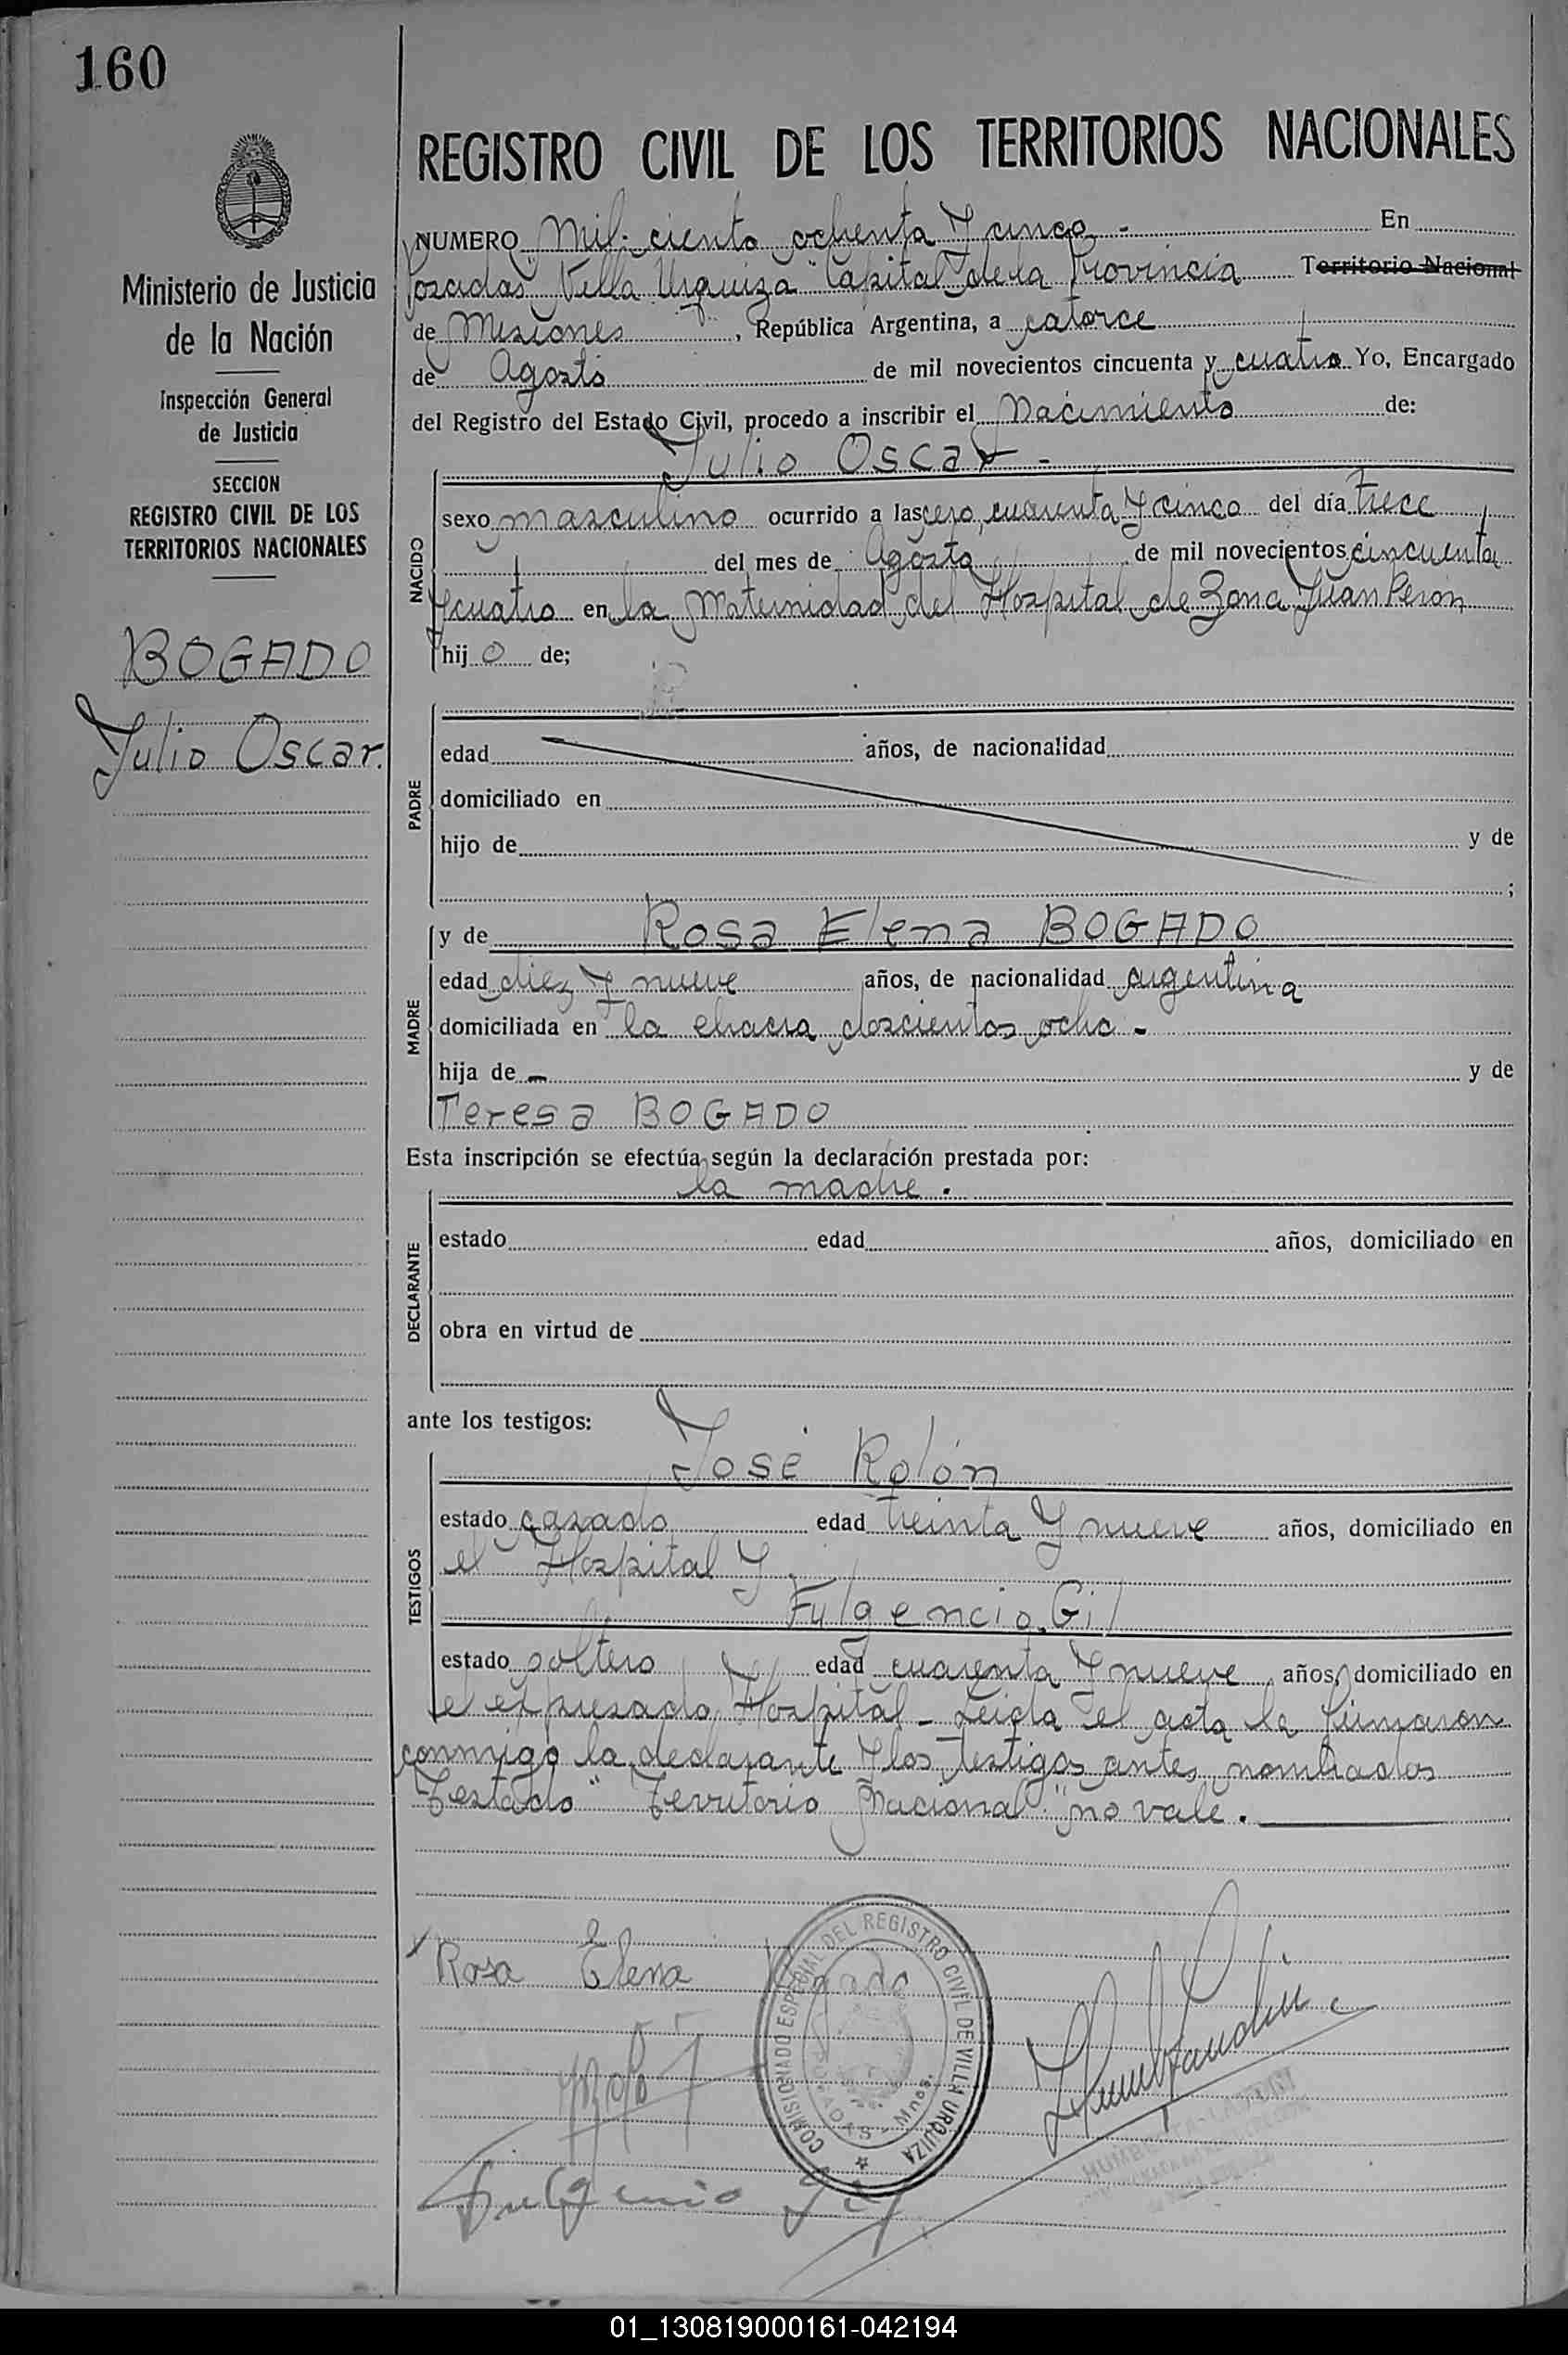 160
Ministerio de Justicia
de la Nación
Inspección General
de Justicia
SECCION
REGISTRO CIVIL DE LOS
TERRITORIOS NACIONALES
BOGADO
Julio Oscar.
REGISTRO CIVIL DE LOS TERRITORIOS NACIONALES
NUMERO Mil ciento ochenta y cinco - En
Posadas Villa Urquiza Capital de la Provincia Territorio Nacional
de Misiones, República Argentina, a catorce
de Agosto de mil novecientos cincuenta y cuatro Yo, Encargado
del Registro del Estado Civil, procedo a inscribir el Nacimiento de:
Julio Oscar -
NACIDO
sexo masculino ocurrido a las cero, cuarenta y cinco del día trece
del mes de Agosto de mil novecientos cincuenta
y cuatro en la Maternidad del Hospital de Zona Juan Perón
hijo de;
PADRE
edad años, de nacionalidad
domiciliado en
hijo de y de
;
MADRE
y de Rosa Elena BOGADO
edad diez y nueve años, de nacionalidad argentina
domiciliada en la chacra doscientos ocho -
hija de - y de
Teresa BOGADO
Esta inscripción se efectúa según la declaración prestada por:
la madre.
DECLARANTE
estado edad años, domiciliado en
obra en virtud de
ante los testigos:
José Rolón
TESTIGOS
estado casado edad treinta y nueve años, domiciliado en
el Hospital y
Fulgencio Gil
estado soltero edad cuarenta y nueve años, domiciliado en
el expresado Hospital - Leida el acta la firmaron
conmigo la declarante y los testigos antes nombrados
Testado "Territorio Nacional" no vale.
Rosa Elena Bogado
COMISIONADO ESPECIAL DEL REGISTRO CIVIL DE VILLA URQUIZA
POSADAS - Mnes.
Fulgencio Gil
01_130819000161-042194